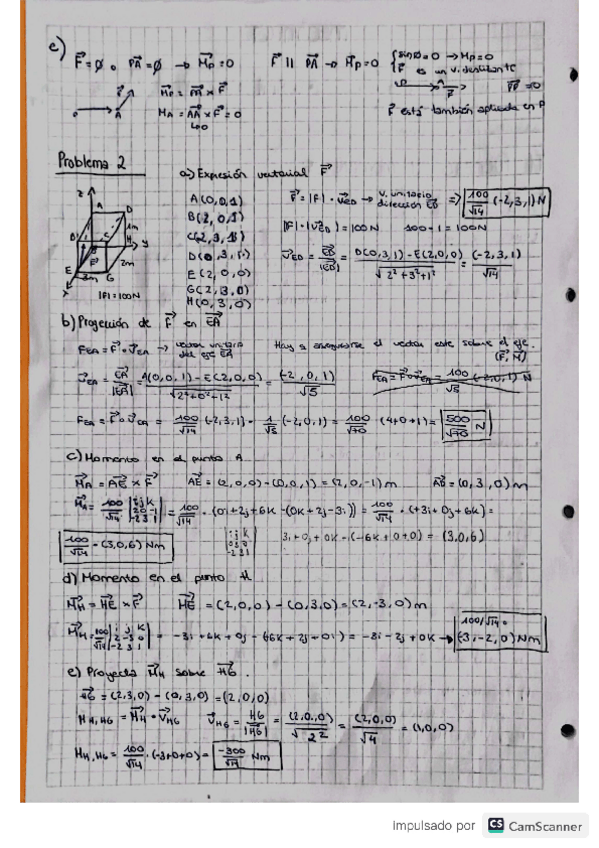 e) F⃗=∅ o PA⃗=∅ → M⃗p=0 F⃗ ∥ PA⃗ → M⃗p=0 { sin0=0 → Mp=0
F⃗ es un v. deslizante
M⃗p = PA⃗ x F⃗
MA = AA⃗ x F⃗ = 0
F⃗ está también aplicada en P
Problema 2
a) Expresión vectorial F⃗
A(0,0,1)
B(2,0,1)
C(2,3,1)
D(0,3,1)
E(2,0,0)
G(2,3,0)
H(0,3,0)
|F|=100N
F⃗ = |F| · v⃗ED → v. unitario dirección ED => 100/√14 (-2,3,1) N
|F| · |v⃗ED| = 100N 100·1 = 100N
v⃗ED = ED⃗/|ED⃗| = D(0,3,1) - E(2,0,0) / √(2²+3²+1²) = (-2,3,1)/√14
b) Proyección de F⃗ en EA⃗
FEA = F⃗ · v⃗EA → vector unitario del eje EA Hay q asegurarse el vector este sobre el eje.
(F⃗, M⃗)
v⃗EA = EA⃗/|EA⃗| = A(0,0,1) - E(2,0,0) / √(2²+0²+1²) = (-2,0,1)/√5
FEA = F⃗ · v⃗EA = 100/√14 (-2,3,1) · 1/√5 (-2,0,1) = 100/√70 (4+0+1) = 500/√70 N
c) Momento en el punto A
M⃗A = AE⃗ x F⃗ AE⃗ = (2,0,0) - (0,0,1) = (2,0,-1) m AD⃗ = (0,3,0) m
M⃗A = 100/√14 |i j k; 2 0 -1; -2 3 1| = 100/√14 · (0i+2j+6k - (0k+2j-3i)) = 100/√14 · (+3i+0j+6k) =
100/√14 · (3,0,6) Nm |i j k; 0 3 0; -2 3 1| 3i+0j+0k - (-6k+0+0) = (3,0,6)
d) Momento en el punto H
M⃗H = HE⃗ x F⃗ HE⃗ = (2,0,0) - (0,3,0) = (2,-3,0) m
M⃗H = 100/√14 |i j k; 2 -3 0; -2 3 1| = -3i+6k+0j - (6k+2j+0i) = -3i-2j+0k → 100/√14 · (-3i-2,0) Nm
e) Proyecta M⃗H sobre HG.
HG⃗ = (2,3,0) - (0,3,0) = (2,0,0)
MH,HG = M⃗H · v⃗HG v⃗HG = HG⃗/|HG⃗| = (2,0,0)/√2² = (2,0,0)/√4 = (1,0,0)
MH,HG = 100/√14 · (-3+0+0) = -300/√14 Nm
Impulsado por CS CamScanner